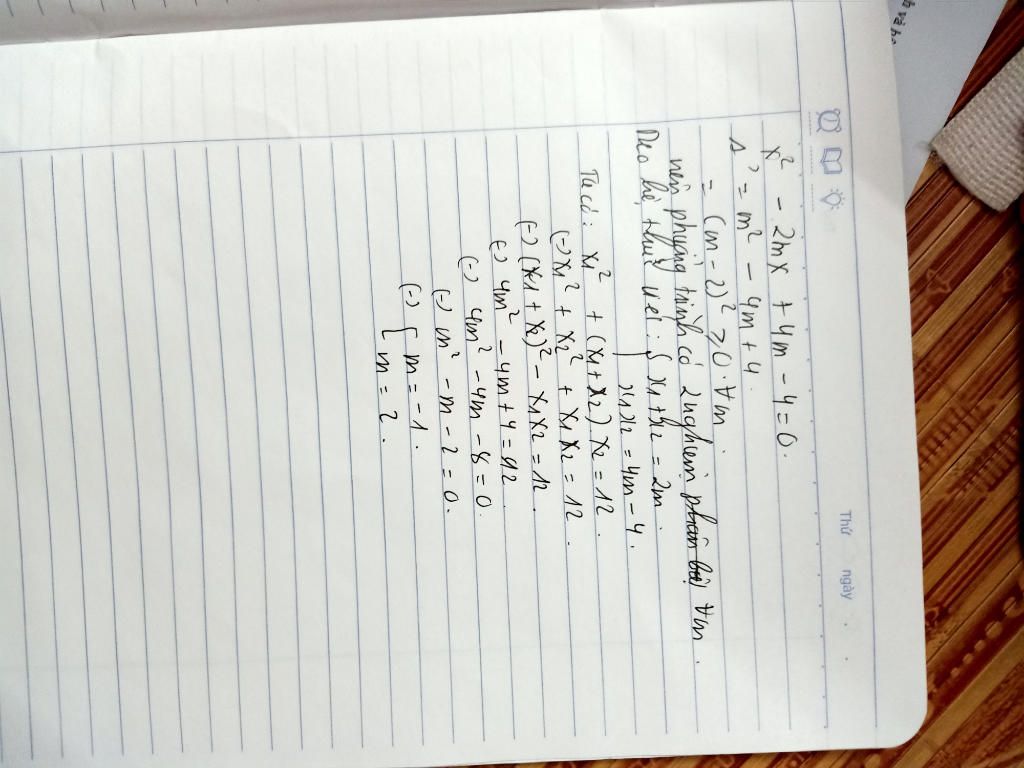 Thứ ngày
x² - 2mx + 4m - 4 = 0.
Δ' = m² - 4m + 4.
= (m - 2)² ≥ 0 ∀m
nên phương trình có 2 nghiệm phân biệt ∀m.
Dựa hệ thức Viét: { x1 + x2 = 2m.
x1x2 = 4m - 4.
Ta có: x1² + (x1 + x2) x2 = 12.
(-) x1² + x2² + x1x2 = 12.
(-) (x1 + x2)² - x1x2 = 12.
(-) 4m² - 4m + 4 = 12.
(-) 4m² - 4m - 8 = 0.
(-) m² - m - 2 = 0.
(-) { m = -1.
m = 2.